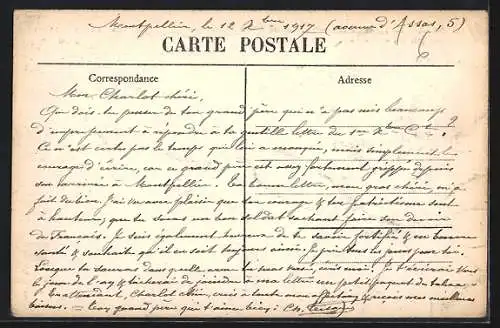 Montpellier, le 12 Xbre 1917 (avenue d'Assas, 5)
CARTE POSTALE
Correspondance
Adresse
Mon Charlot chéri,
Que dois-tu penser de ton grand père qui n'a pas mis beaucoup
d'empressement à répondre à ta gentille lettre du 1er Xbre
Ce n'est certes pas le temps qui lui a manqué, mais simplement le
courage d'écrire, car ce grand père est assez fortement grippé depuis
son arrivée à Montpellier. Ta bonne lettre, mon gros chéri, m'a
fait du bien. J'ai vu avec plaisir que ton courage & ton patriotisme sont
à hauteur, que tu seras un bon soldat sachant faire son devoir
de Français. Je suis également heureux de te savoir fortifié & en bonne
santé & souhaite qu'il en soit toujours ainsi. Je prie tous les jours pour toi.
Lorsque tu sauras dans quelle arme tu, écris-moi. Je t'écrirai
le jour de l'an & tâcherai de joindre à ma lettre un petit paquet de tabac
En attendant, Charlot chéri, crois à toute mon affection & reçois mes meilleurs
baisers. = Ton grand père qui t'aime bien : Ch.